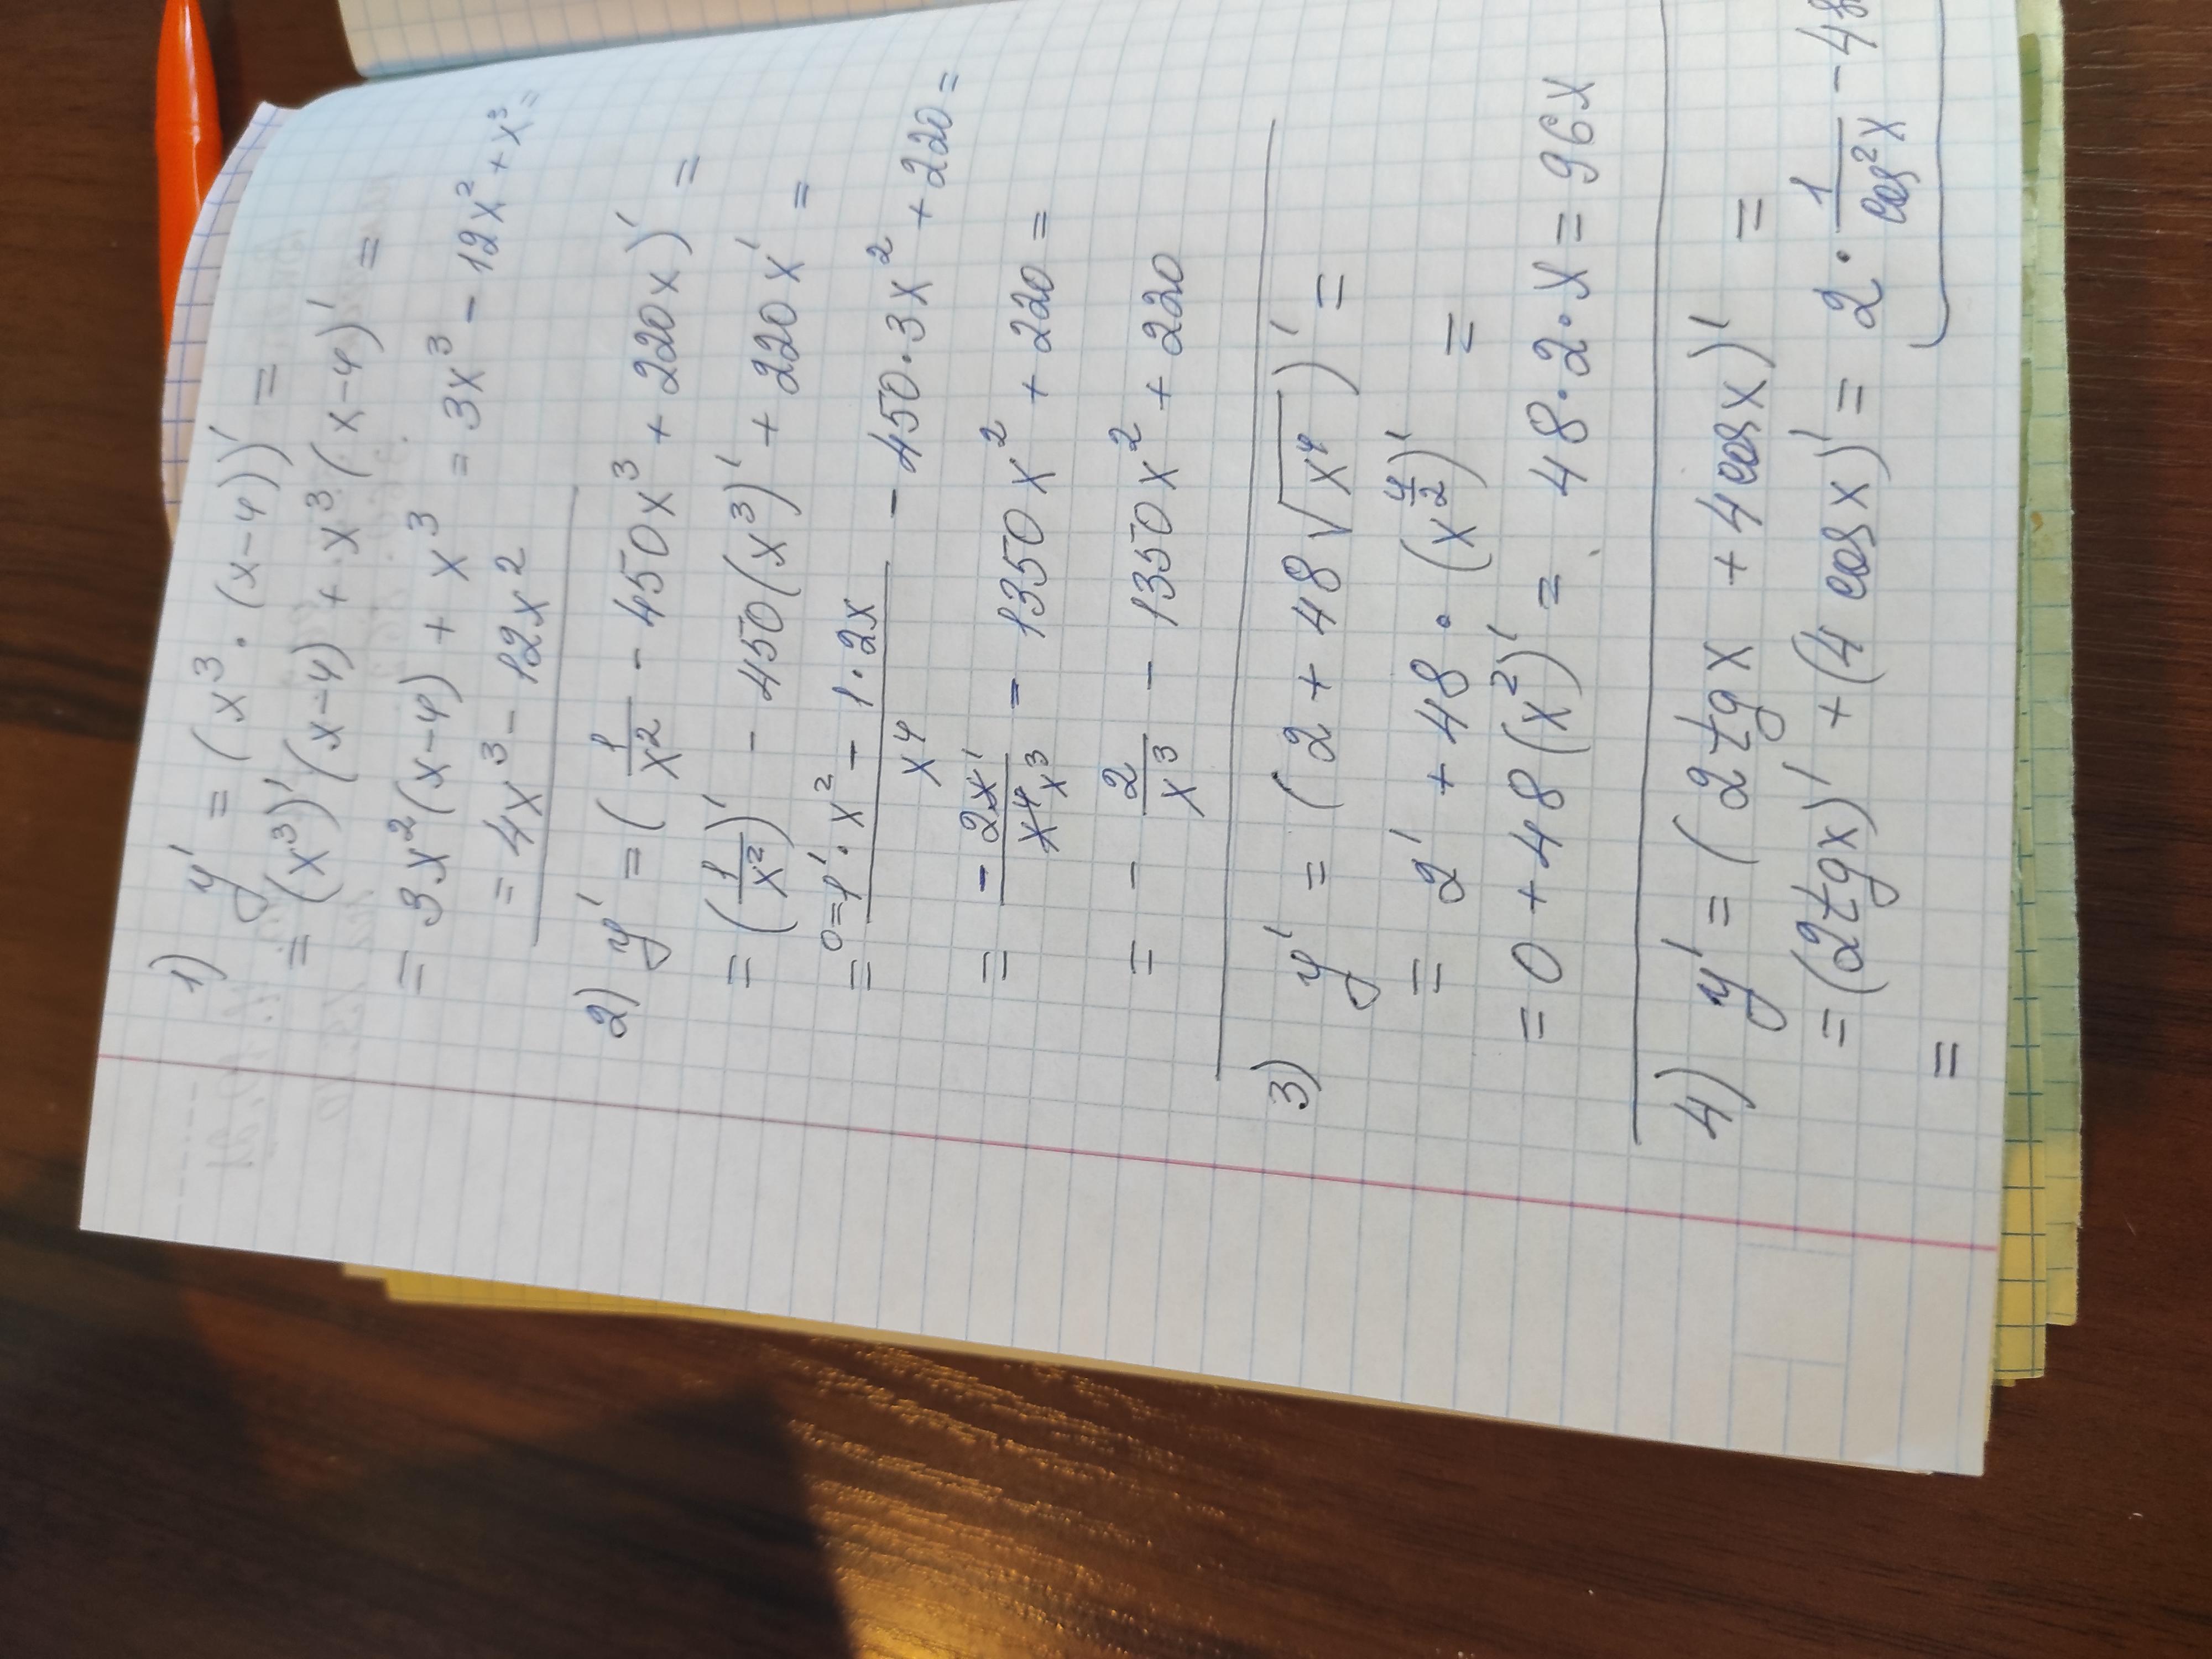 1) y' = (x³ · (x-4))' =
= (x³)' (x-4) + x³ (x-4)' =
= 3x² (x-4) + x³ = 3x³ - 12x² + x³ =
= 4x³ - 12x²
2) y' = (1/x² - 450x³ + 220x)' =
= (1/x²)' - 450(x³)' + 220x' =
= (0=1' · x² - 1·2x)/x⁴ - 450·3x² + 220 =
= -2x¹/x⁴ x³ - 1350x² + 220 =
= - 2/x³ - 1350x² + 220
3) y' = (2 + 48√x⁴)' =
= 2' + 48 · (x^(4/2))' =
= 0 + 48(x²)' = 48·2·x = 96x
4) y' = (2tgx + 4cosx)' =
= (2tgx)' + (4cosx)' = 2 · 1/cos²x - 4
=